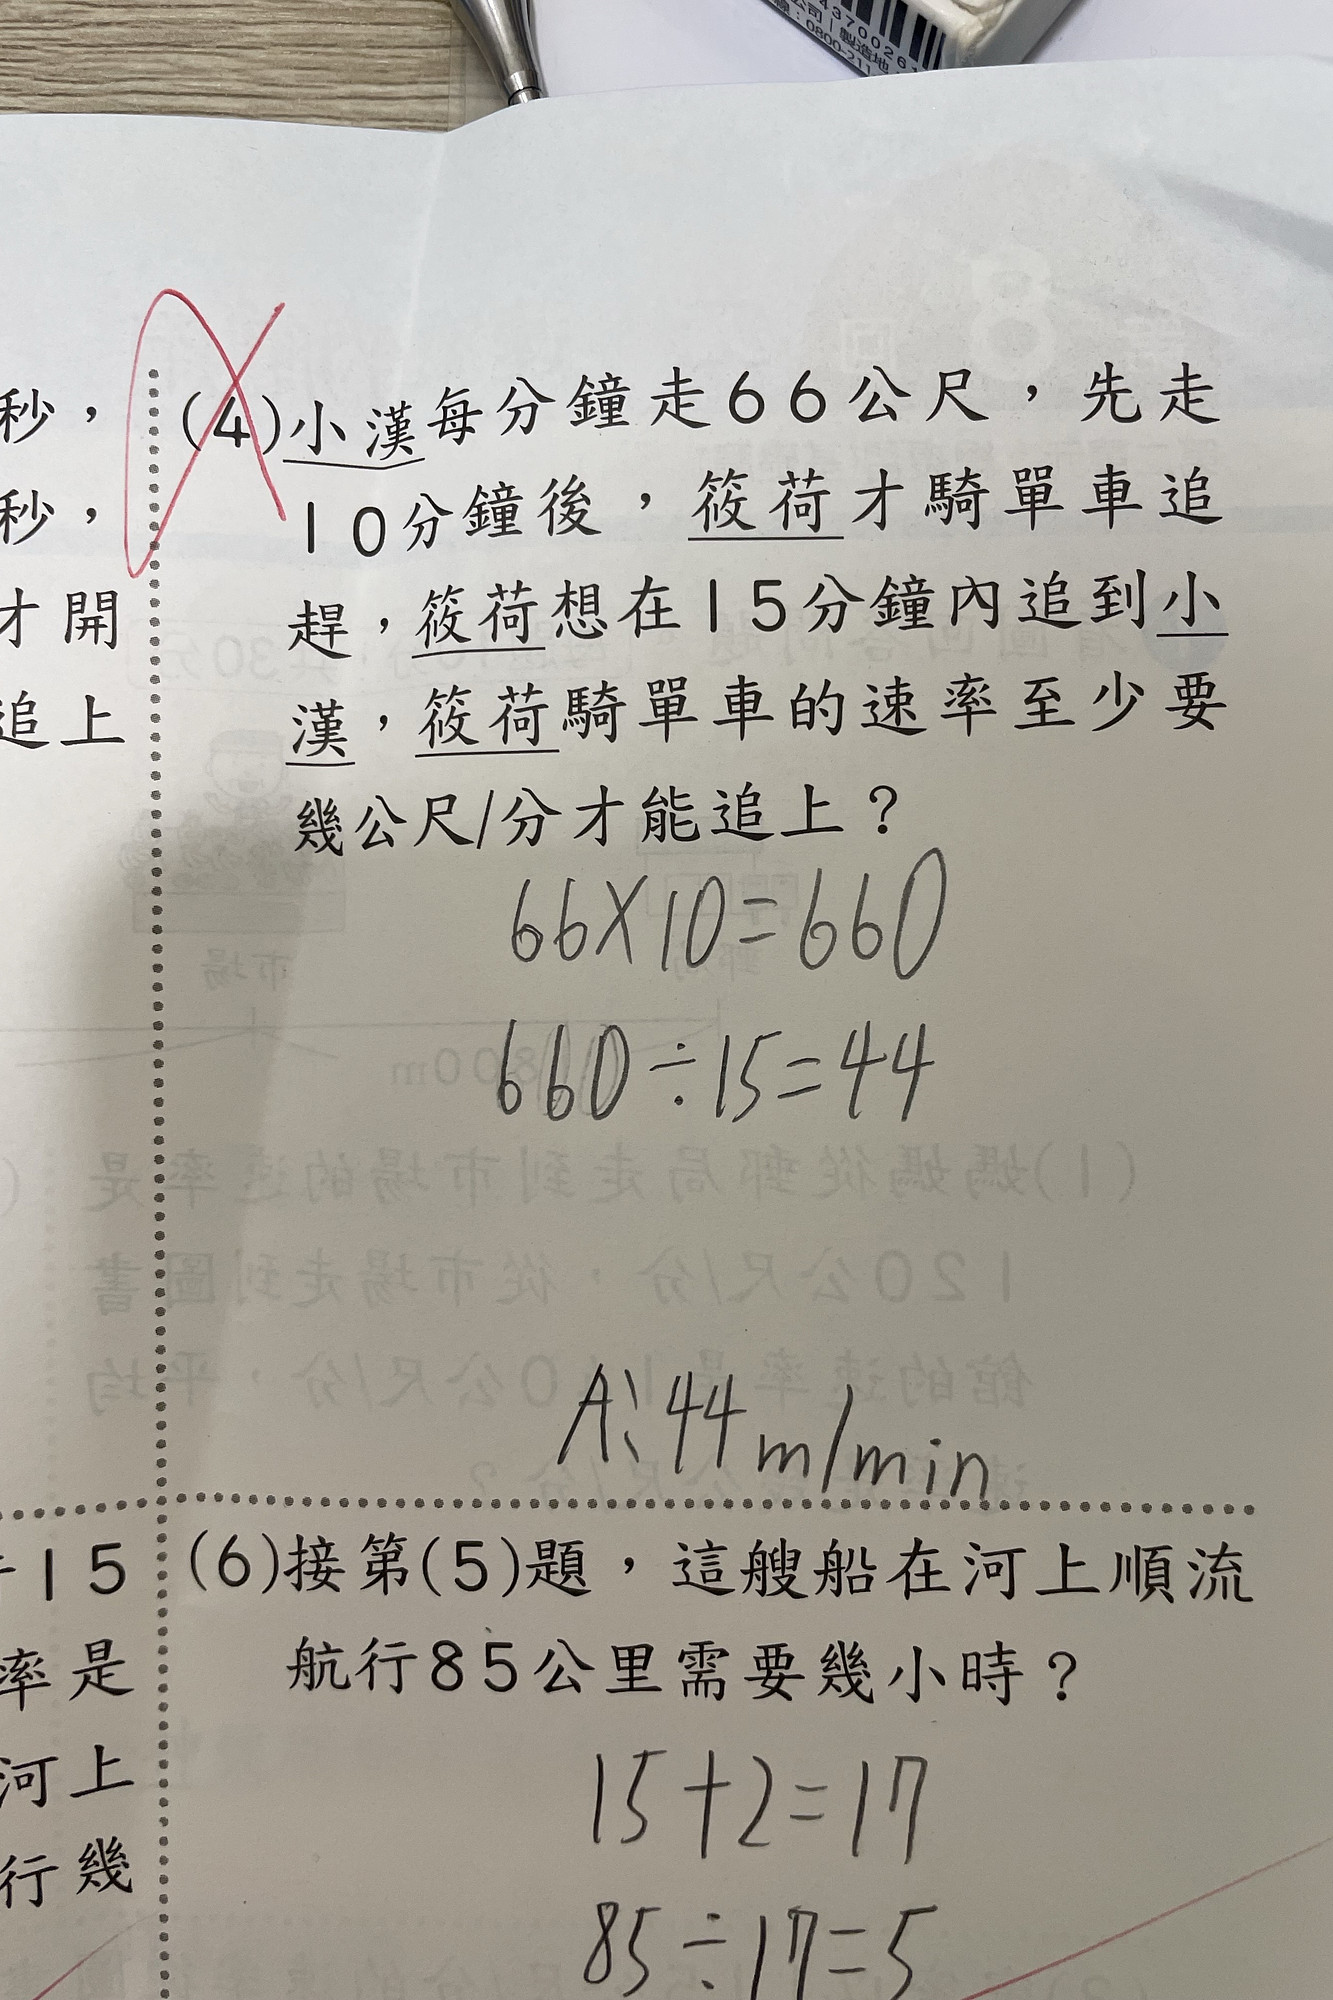 4370026
公司|製造地:
線:0800-211
秒,
秒,
才開
追上
(4)小漢每分鐘走66公尺,先走
10分鐘後,筱荷才騎單車追
趕,筱荷想在15分鐘內追到小
漢,筱荷騎單車的速率至少要
幾公尺/分才能追上?
66×10=660
660÷15=44
A:44m/min
15
率是
河上
行幾
(6)接第(5)題,這艘船在河上順流
航行85公里需要幾小時?
15+2=17
85÷17=5